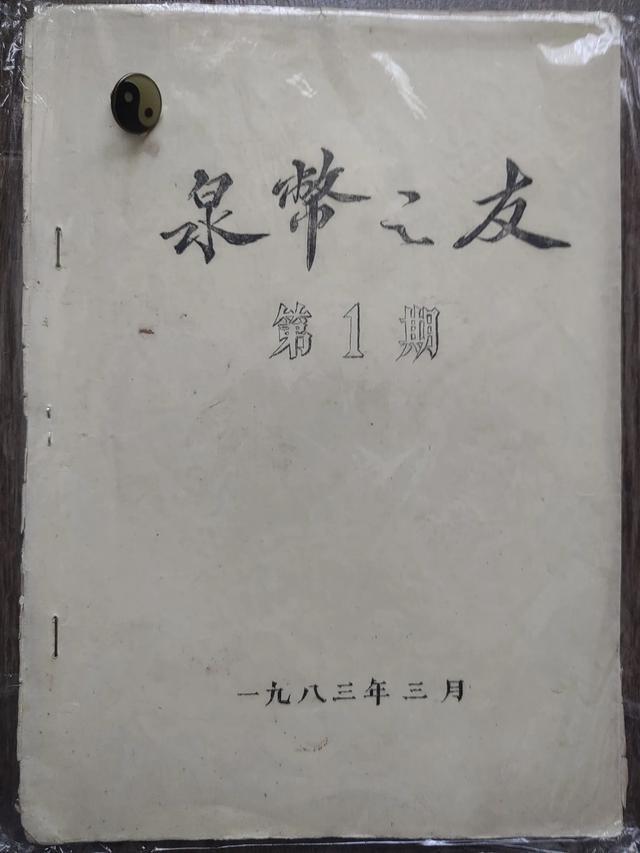 泉幣之友
第1期
一九八三年三月